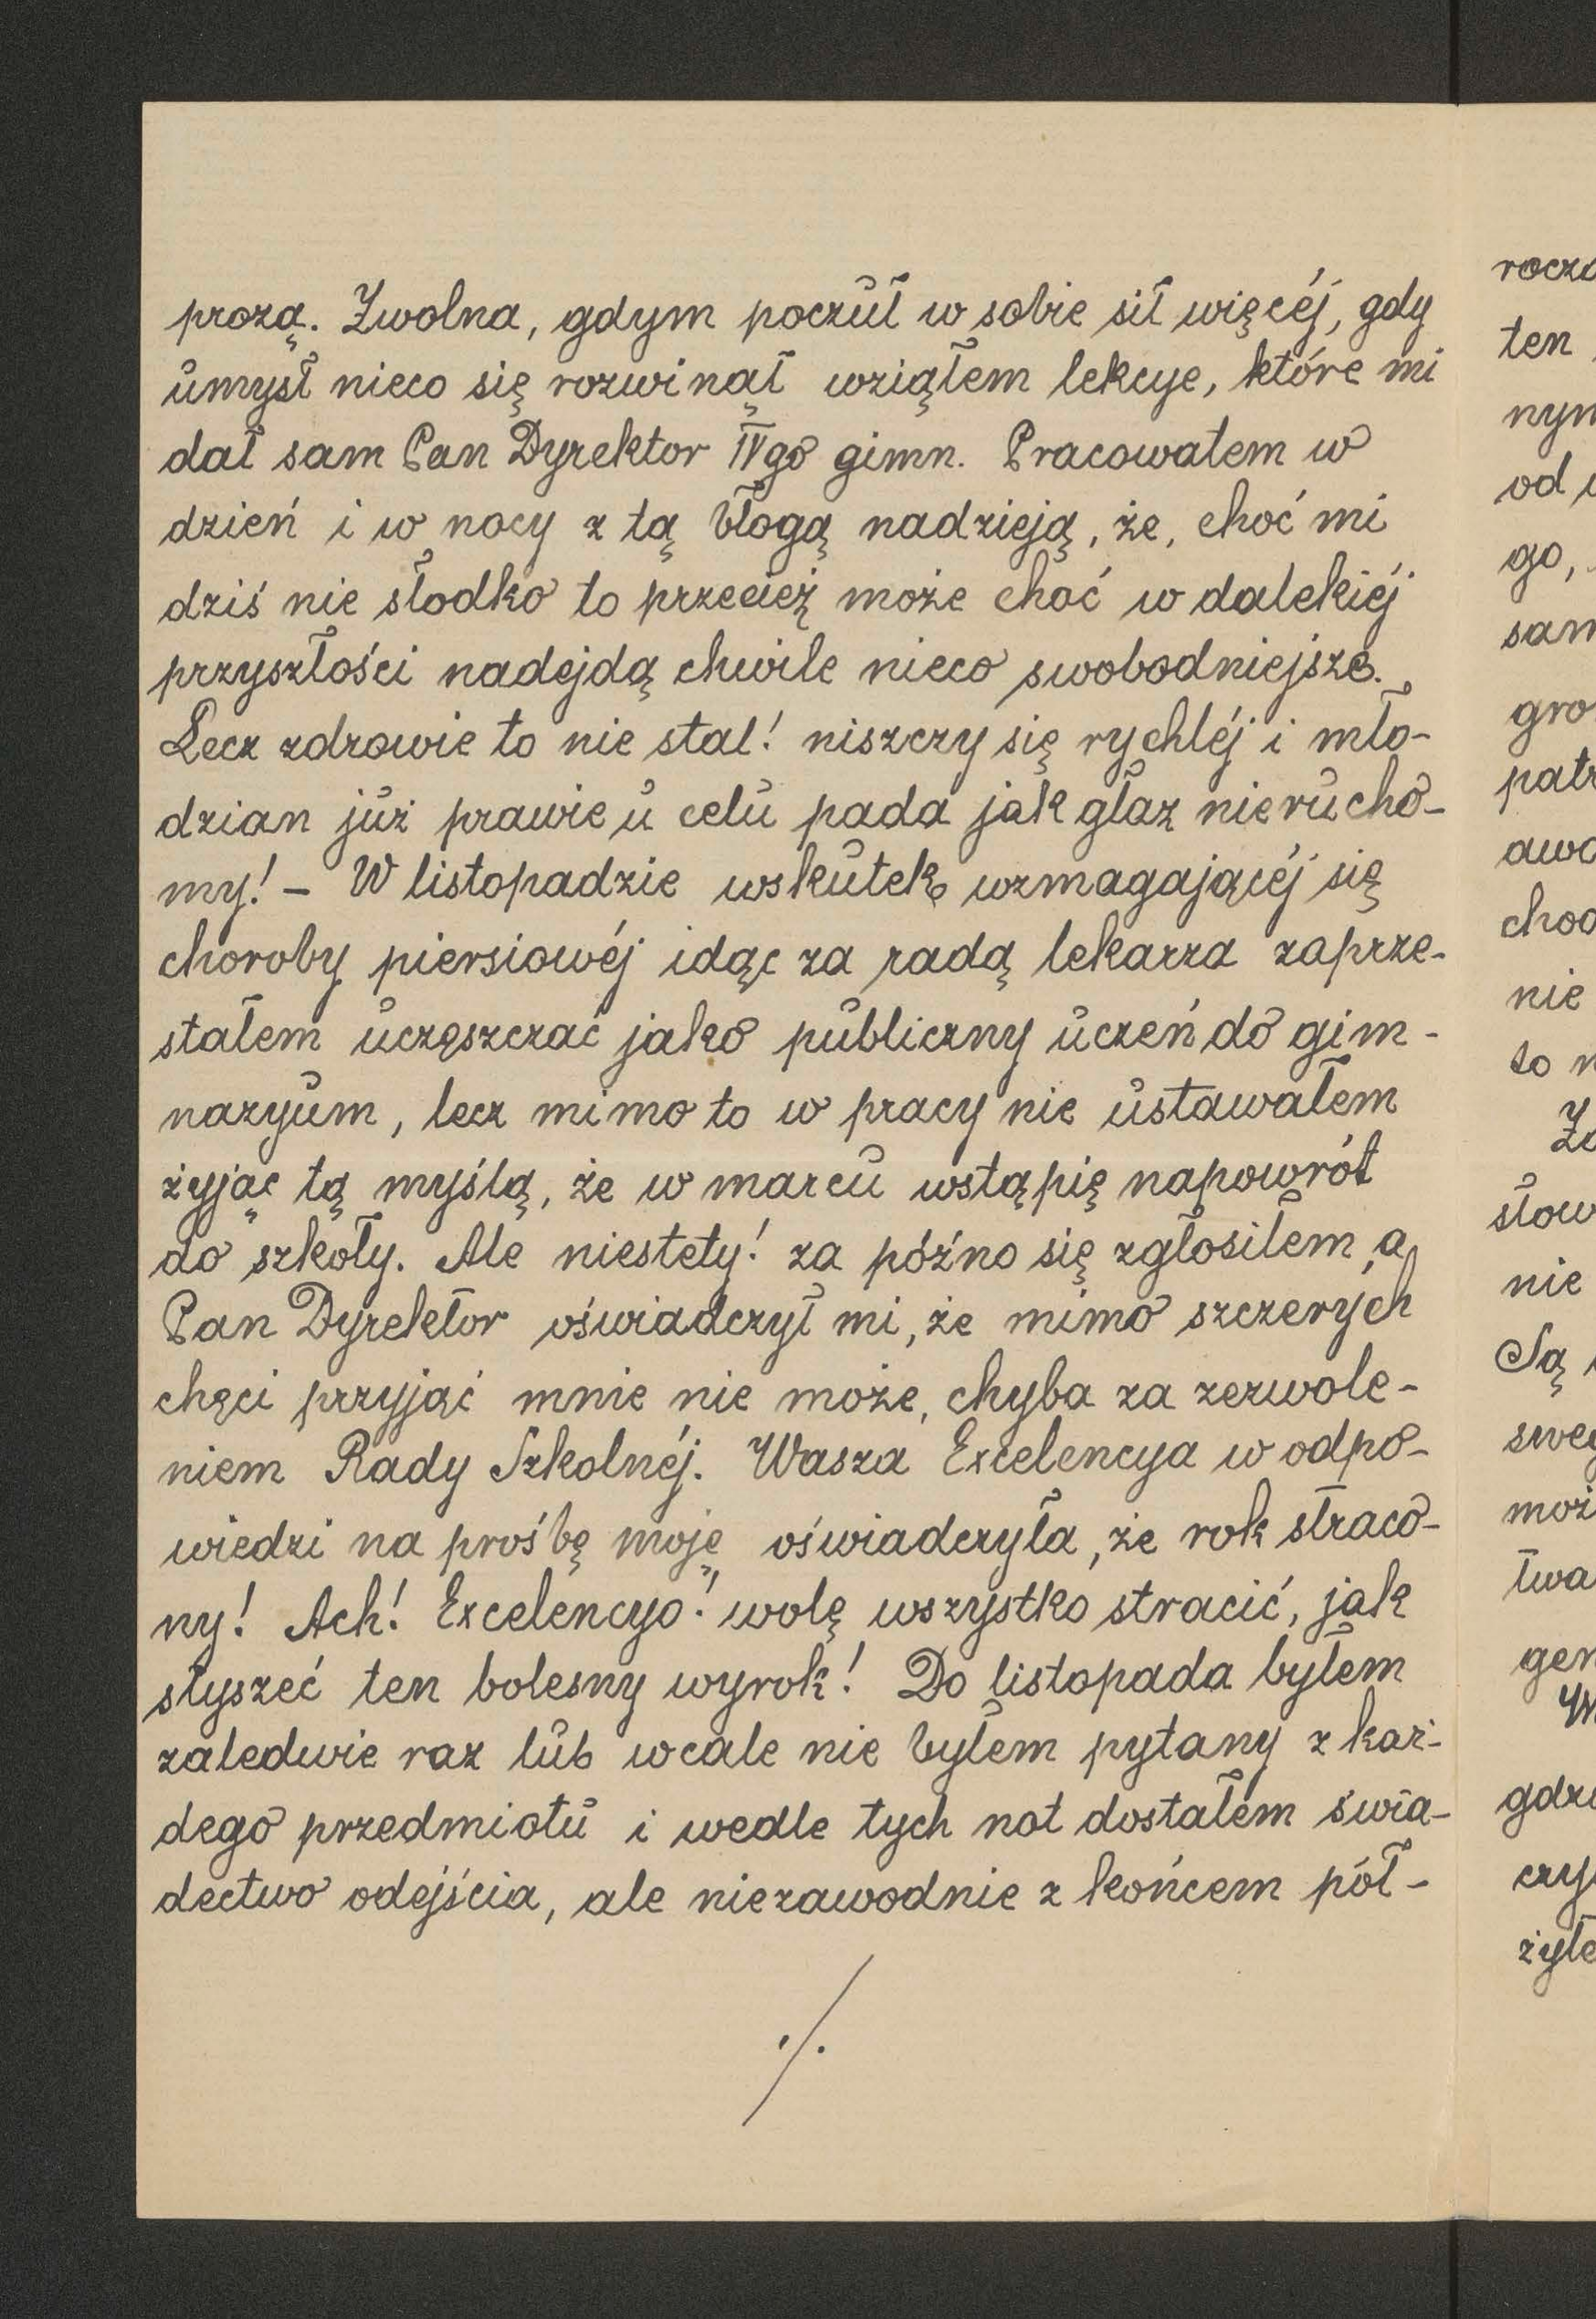 prozą. Zwolna, gdym poczuł w sobie sił więcéj, gdy
umysł nieco się rozwinął wziąłem lekcye, które mi
dał sam Pan Dyrektor IVgo gimn. Pracowałem w
dzień i w nocy z tą błogą nadzieją, że, choć mi
dziś nie słodko to przecież może choć w dalekiéj
przyszłości nadejdą chwile nieco swobodniejsze.
Lecz zdrowie to nie stal! niszczy się rychléj i mło-
dzian już prawie u celu pada jak głaz nierucho-
my! - W listopadzie wskutek wzmagającéj się
choroby piersiowéj idąc za radą lekarza zaprze-
stałem uczęszczać jako publiczny uczeń do gim-
nazyum, lecz mimo to w pracy nie ustawałem
żyjąc tą myślą, że w marcu wstąpię napowrót
do szkoły. Ale niestety! za późno się zgłosiłem, a
Pan Dyrektor oświadczył mi, że mimo szczerych
chęci przyjąć mnie nie może, chyba za zezwole-
niem Rady Szkolnéj. Wasza Excelencya w odpo-
wiedzi na prośbę moję oświadczyła, że rok straco-
ny! Ach! Excelencyo! wolę wszystko stracić, jak
słyszeć ten bolesny wyrok! Do listopada byłem
zaledwie raz lub wcale nie byłem pytany z każ-
dego przedmiotu i wedle tych not dostałem świa-
dectwo odejścia, ale niezawodnie z końcem pół-
./.
ten
nym
od
go,
sam
gro
nie
to
nie
Są